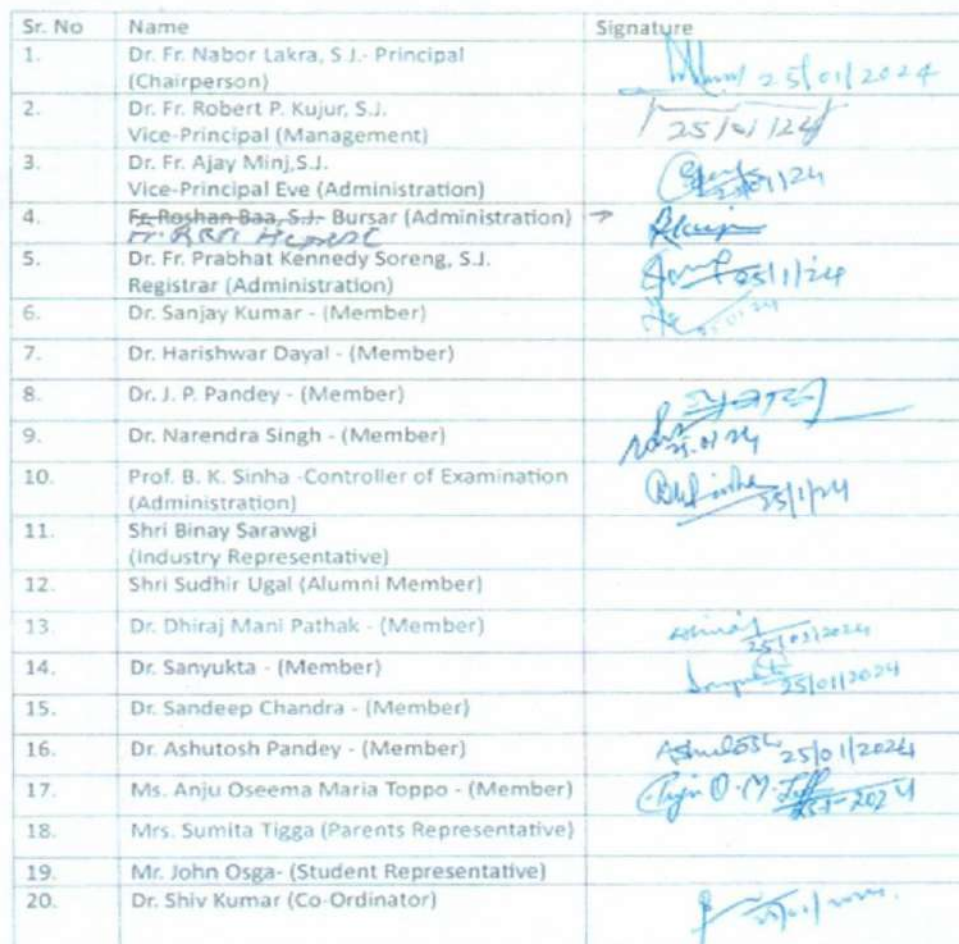 Sr. No Name Signature
1. Dr. Fr. Nabor Lakra, S.J.- Principal
(Chairperson) 25/01/2024
2. Dr. Fr. Robert P. Kujur, S.J.
Vice-Principal (Management) 25/01/24
3. Dr. Fr. Ajay Minj,S.J.
Vice-Principal Eve (Administration)
4. Fr. Roshan Baa, S.J.- Bursar (Administration)
Fr.
5. Dr. Fr. Prabhat Kennedy Soreng, S.J.
Registrar (Administration) 25/1/24
6. Dr. Sanjay Kumar - (Member)
7. Dr. Harishwar Dayal - (Member)
8. Dr. J. P. Pandey - (Member)
9. Dr. Narendra Singh - (Member) 25.01.24
10. Prof. B. K. Sinha -Controller of Examination
(Administration) 25/1/24
11. Shri Binay Sarawgi
(Industry Representative)
12. Shri Sudhir Ugal (Alumni Member)
13. Dr. Dhiraj Mani Pathak - (Member)
14. Dr. Sanyukta - (Member) 25/01/2024
15. Dr. Sandeep Chandra - (Member)
16. Dr. Ashutosh Pandey - (Member) Ashutosh 25/01/2024
17. Ms. Anju Oseema Maria Toppo - (Member)
18. Mrs. Sumita Tigga (Parents Representative)
19. Mr. John Osga- (Student Representative)
20. Dr. Shiv Kumar (Co-Ordinator)